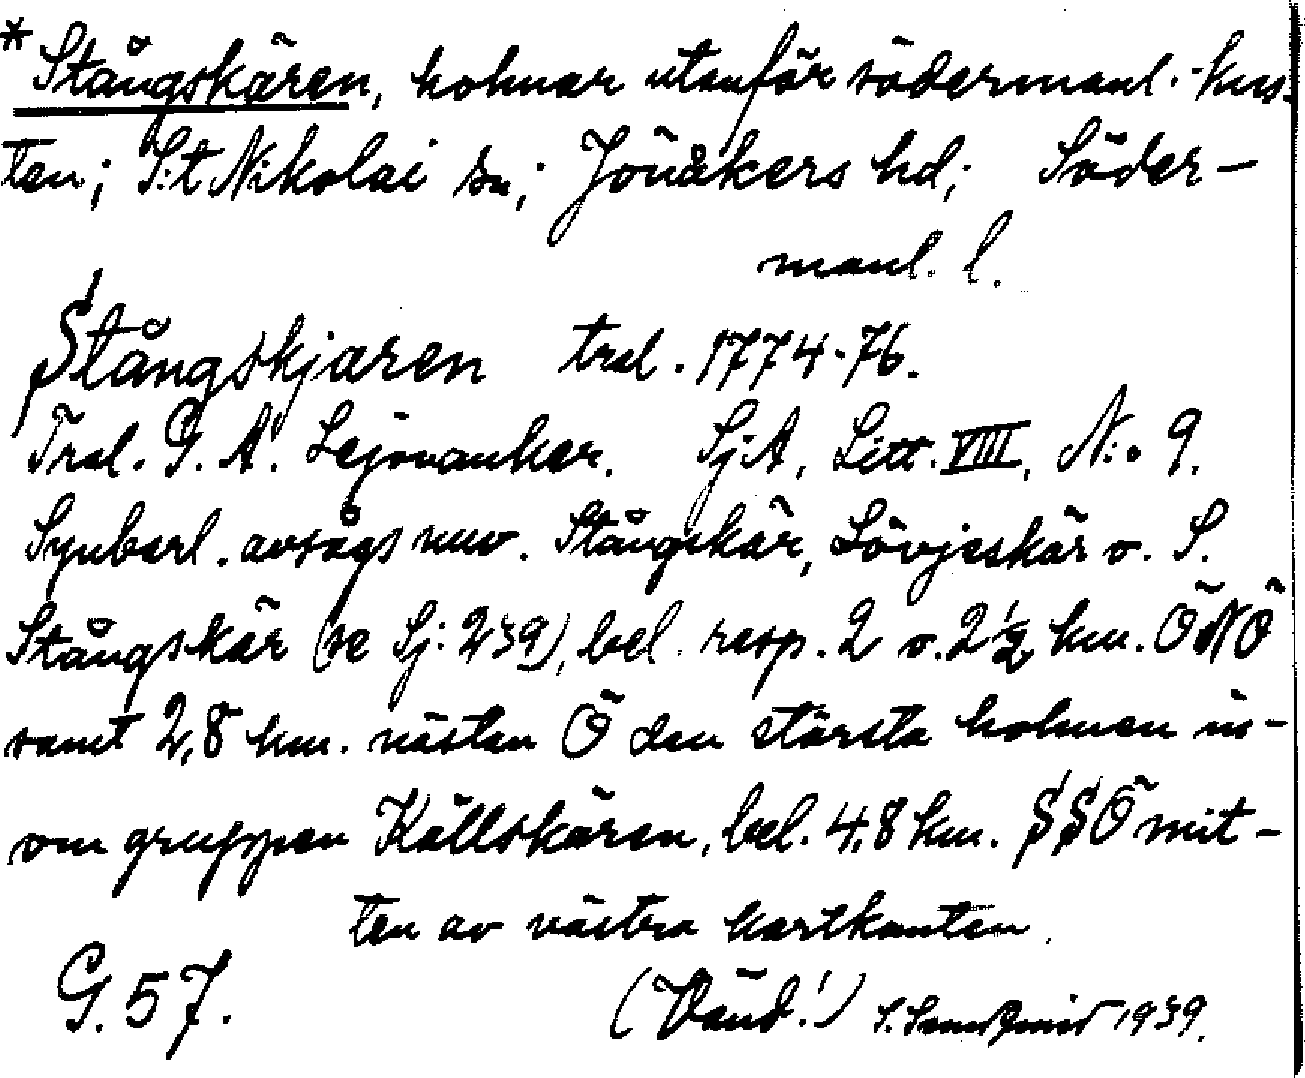 *Stångskären, holmar utanför södermanl. kus-
ten; S:t Nikolai sn; Jönåkers hd; Söder-
manl. l.
Stångskjären trol. 1774-76.
Trol. G. A. Lejonanker. SjA, Litt. VIII, N:o 9.
Synbarl. avsågs nuv. Stångskär, Lövjeskär o. S.
Stångskär (se Sj: 239), bel. resp. 2 o. 2½ km. ÖNÖ
samt 2,8 km. nästan Ö den största holmen in-
om gruppen Källskären, bel. 4,8 km. SSÖ mit-
ten av västra kartkanten.
G. 57. (Vänd!) S. 1939.